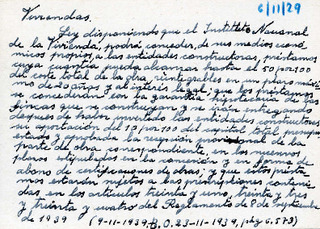 6/11/29
Viviendas.
Ley disponiendo que el Instituto Nacional
de la Vivienda, podrá conceder, de sus medios econó
micos propios a las entidades constructoras, préstamos
cuya cuantía pueda alcanzar hasta el 50 por 100
del coste total de la obra, reintegrables en un plazo máxi
mo de 20 años y al interés legal; que los préstamos
se concederán con la garantía hipotecaria de las
fincas que se construyan y se irán entregando
después de haber invertido las entidades constructoras
su aportación del 10 por 100 del capital total presupu
estado y aprobada la recepción provisional de la
parte de obra correspondiente, en sucesivos
plazos estipulados en la concesión y en forma de
abono de certificaciones de obras; y que estos présta
mos estarán sujetos a las prescripciones conteni
das en los artículos treinta y uno, treinta y tres
y treinta y cuatro del Reglamento de 8 de Septiembre
de 1939 (9-11-1939, B.O. 23-11-1939, pág 6.573)